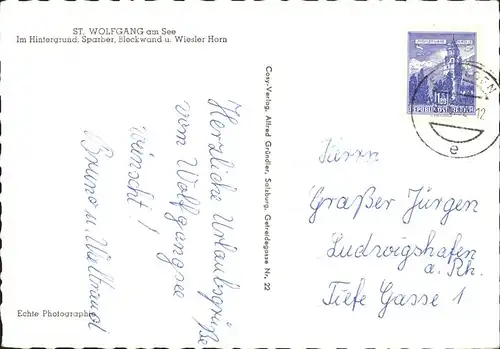 ST. WOLFGANG am See
Im Hintergrund. Sparber, Bleckwand u. Wiesler Horn
Herzliche Urlaubsgrüße
vom Wolfgangsee
wünscht!
Bruno u. Waltraud
Cosy-Verlag, Alfred Gründler, Salzburg, Getreidegasse Nr. 22
Echte Photographie
REPUBLIK ÖSTERREICH
12
e
Herrn
Graßer Jürgen
Ludwigshafen
a. Rh.
Tiefe Gasse 1